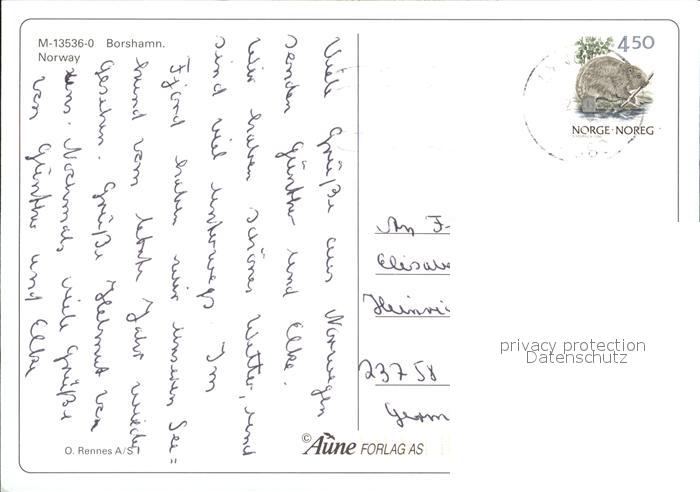 M-13536-0 Borshamn.
Norway
Viele Grüße aus Norwegen
senden Günther und Elke.
Wir haben schönes Wetter, und
sind viel unterwegs. Im
Fjord haben wir unseren See=
hund vom letzte Jahr wieder
gesehen. Grüße Helmut von
uns. Nochmals viele Grüße
von Günther und Elke
450
NORGE·NOREG
An F
Elisabe
Heinri
23758
Germ
privacy protection
Datenschutz
O. Rennes A/S
© Aune FORLAG AS